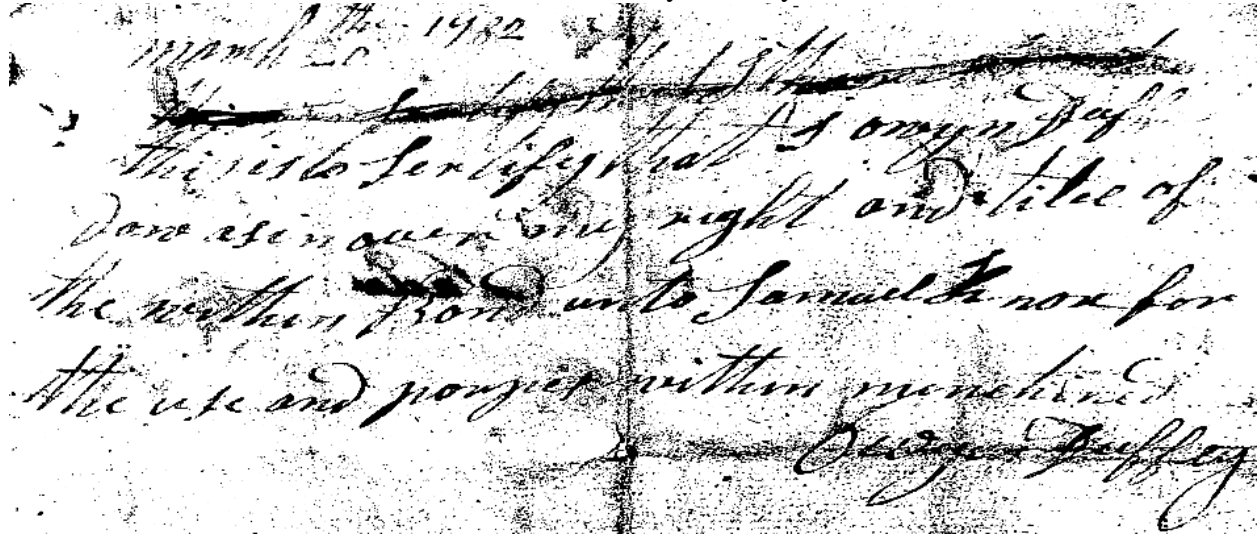 march 20th 1782
this is to Sertify that I owyn Duff
Dow asin over my right and titel of
the within Bond unto Samuel Knox for
the use and porpes within menchined
Owyn Duffey